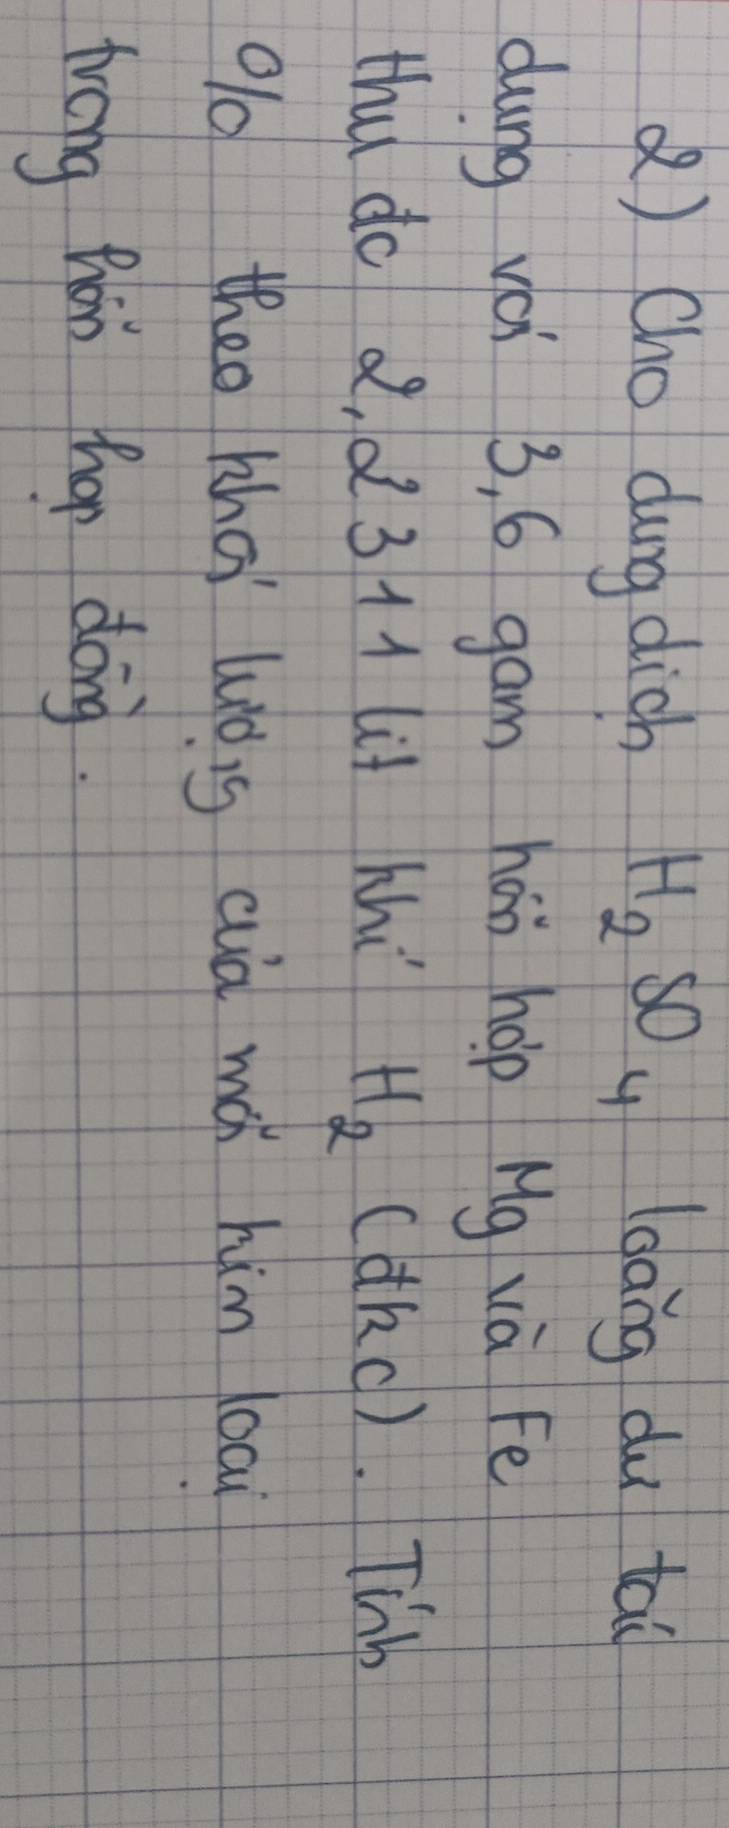 2) Cho dung dịch H₂SO₄ loãng dư tác
dụng với 3,6 gam hỗn hợp Mg và Fe
thu đc 2,2311 lít khí H₂ (đkc). Tính
% theo khối lượng của mỗi kim loại
trong hỗn hợp đồng.